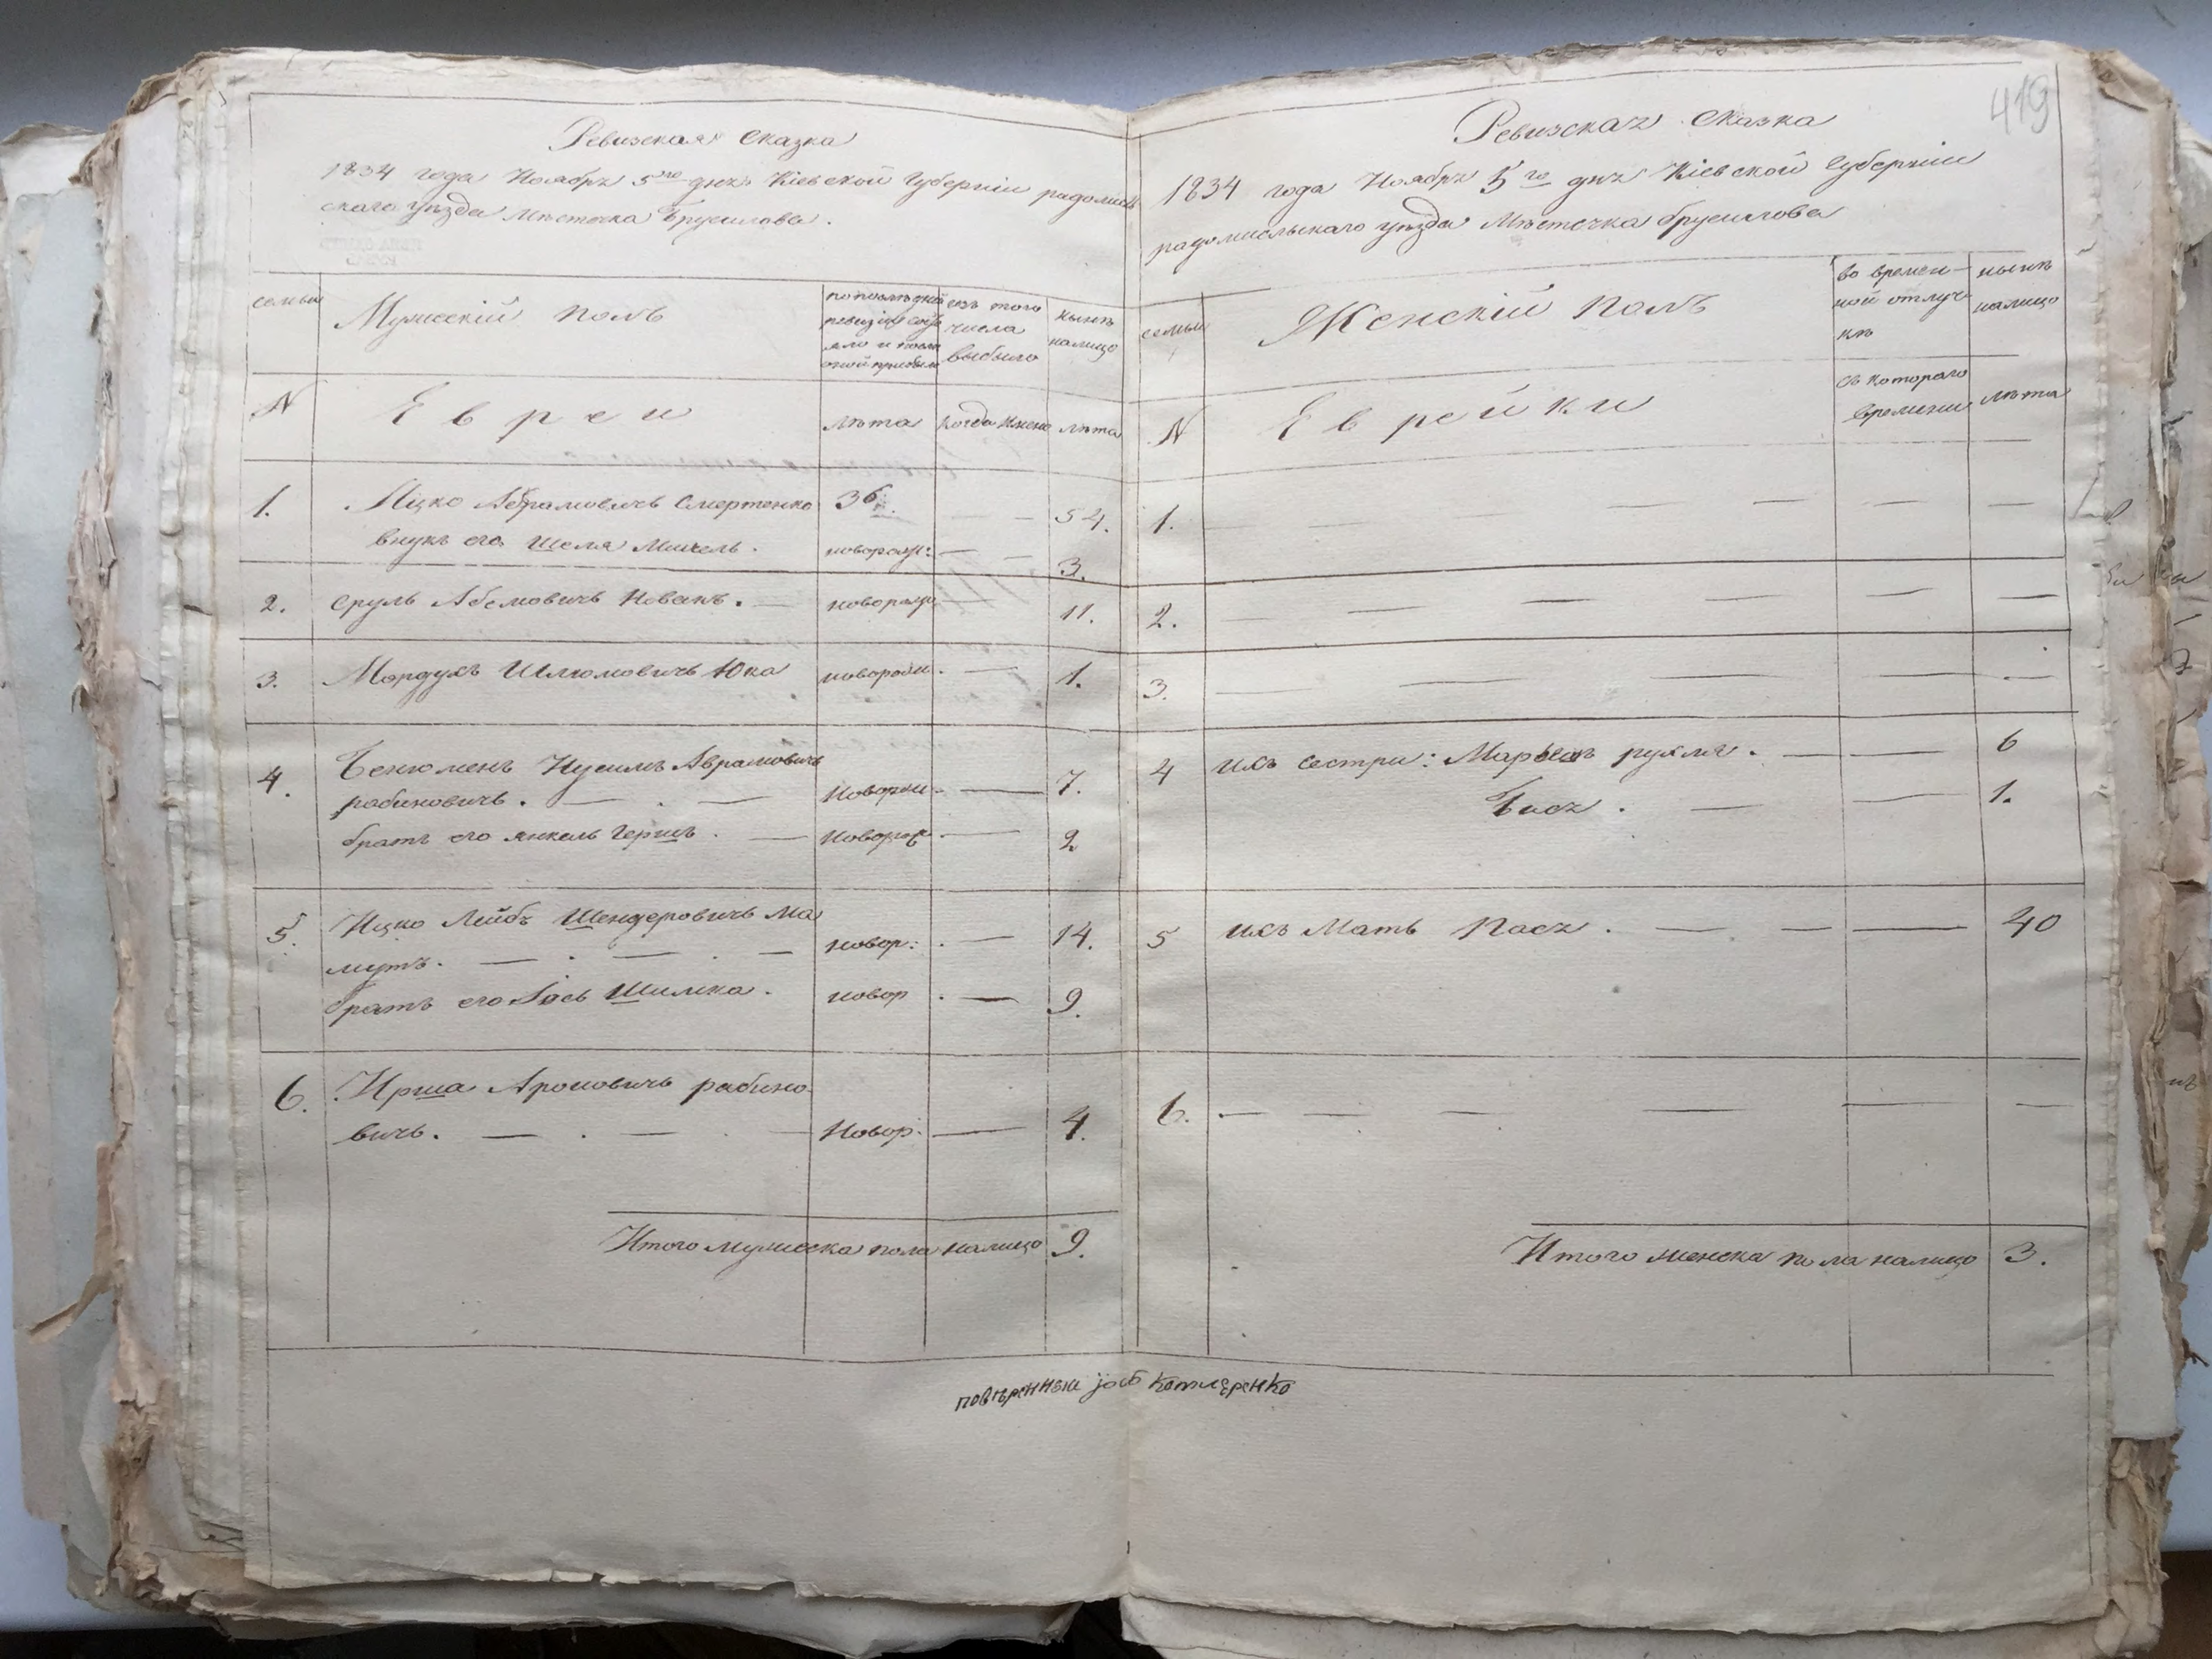 Ревизская сказка
1834 года Ноября 5го дня Кіевской Губерніи радомысль
скаго уезда Мѣстечка Брусилова.
семьи
Мужескій полъ
по последней
ревизіи состо
яло и после
оной прибыло
изъ того
числа
выбыло
нынѣ
налицо
N
Евреи
лѣта
когда имено
лѣта
1.
Ицко Абрамовичъ Смертенко
36.
54.
внукъ его Шеля Михель.
новорож:
3.
2.
Сруль Абемовичъ Новакъ.
новорож
11.
3.
Мордухъ Шлиомовичъ Юка
новорож.
1.
4.
Бенюменъ Нусимъ Аврамовичъ
рабиновичъ.
Новорж.
7.
братъ его янкель Гершъ.
Новорж.
2
5.
Ицко Лейбъ Шендеровичъ Ма
мутъ.
новор:
14.
братъ его Іось Шимка.
новор
9.
6.
Ирша Ароновичъ рабино
вичъ.
Новор:
4.
Итого мужеска пола налицо 9.
419
Ревизская сказка
1834 года Ноября 5го дня Кіевской Губерніи
радомысльскаго уезда Мѣстечка брусилова
семьи
Женскій полъ
во времен-
ной отлуч-
кѣ
нынѣ
налицо
N
Еврейки
съ котораго
времени
лѣта
1.
2.
3.
4
ихъ сестри: Марьямъ рухля.
6
Бася.
1.
5
ихъ Мать Пася.
40
6.
Итого женска пола налицо 3.
повѣренный јосѣ Котляренко